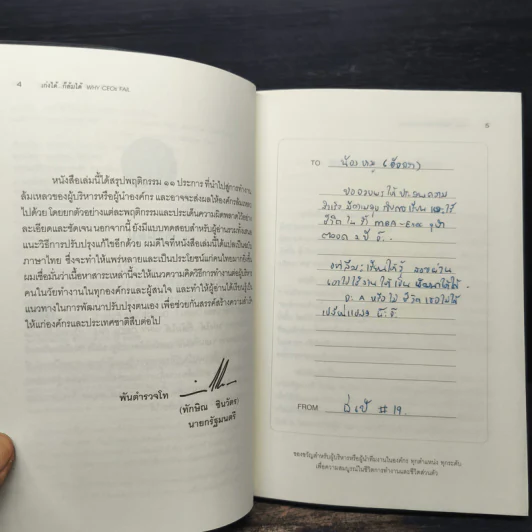 4 เก่งได้...ก็ล้มได้ WHY CEOs FAIL
หนังสือเล่มนี้ได้สรุปพฤติกรรม ๑๑ ประการ ที่นำไปสู่การทำงาน
ล้มเหลวของผู้บริหารหรือผู้นำองค์กร และอาจจะส่งผลให้องค์กรล้มเหลว
ไปด้วย โดยยกตัวอย่างแต่ละพฤติกรรมและประเด็นความผิดพลาดไว้อย่าง
ละเอียดและชัดเจน นอกจากนี้ ยังมีแบบทดสอบสำหรับผู้อ่านรวมทั้งเสนอ
แนะวิธีการปรับปรุงแก้ไขอีกด้วย ผมดีใจที่หนังสือเล่มนี้ได้แปลเป็นฉบับ
ภาษาไทย ซึ่งจะทำให้แพร่หลายและเป็นประโยชน์แก่คนไทยมากยิ่งขึ้น
ผมเชื่อมั่นว่าเนื้อหาสาระเหล่านี้จะให้แนวความคิดวิธีการทำงานต่อผู้บริหาร
คนในวัยทำงานในทุกองค์กรและผู้สนใจ และทำให้ผู้อ่านได้เรียนรู้เป็น
แนวทางในการพัฒนาปรับปรุงตนเอง เพื่อช่วยกันสรรค์สร้างความสำเร็จ
ให้แก่องค์กรและประเทศชาติสืบต่อไป
พันตำรวจโท
(ทักษิณ ชินวัตร)
นายกรัฐมนตรี
5
TO น้อง
ขออวยพรให้ประสบความ
สำเร็จ
ชีวิตใน ที่ MBA-Exec จุฬา
ตลอด 2 ปี
อย่าลืม: เรียนให้รู้
FROM #19.
ของขวัญสำหรับผู้บริหารหรือผู้นำทีมงานในองค์กร ทุกตำแหน่ง ทุกระดับ
เพื่อความสมบูรณ์ในชีวิตการทำงานและชีวิตส่วนตัว